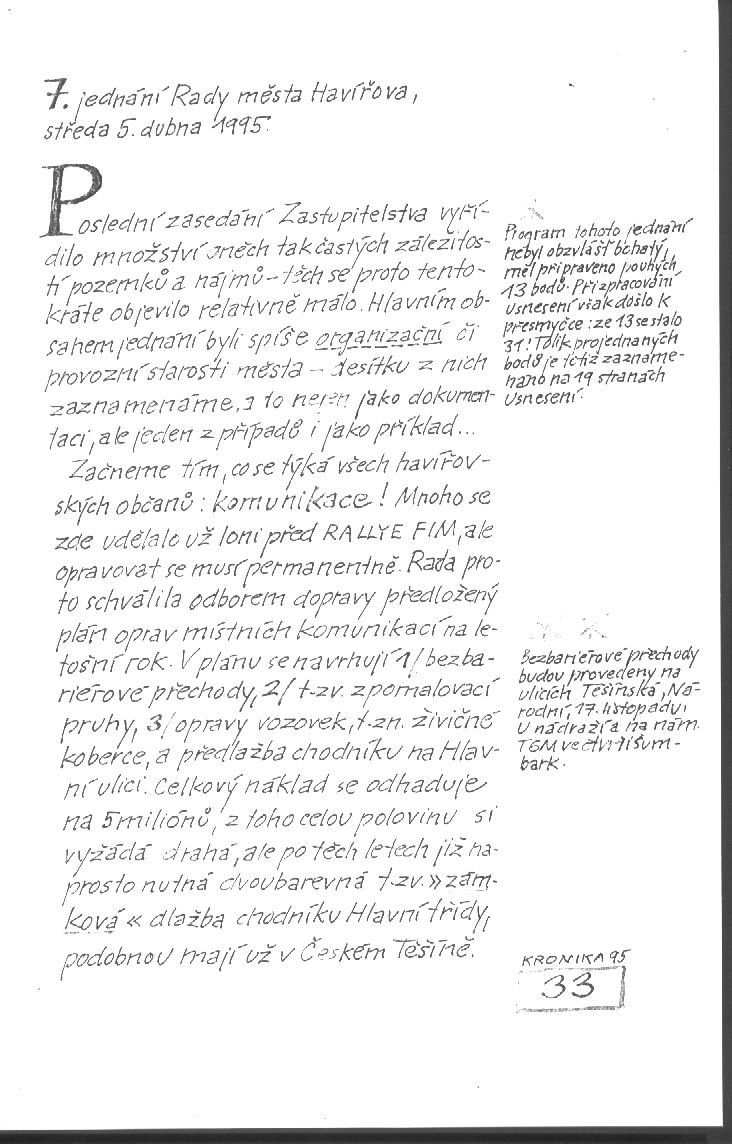 7. jednání Rady města Havířova,
středa 5. dubna 1995.
Poslední zasedání Zastupitelstva vyří-
dilo množství oněch tak častých záležitos-
tí pozemků a nájmů – těch se proto tento-
kráte objevilo relativně málo. Hlavním ob-
sahem jednání byli spíše organizační či
provozní starosti města – desítku z nich
zaznamenáme, a to nejen jako dokumen-
taci, ale jeden z případů i jako příklad...
Začneme tím, co se týká všech havířov-
ských občanů : komunikace ! Mnoho se
zde udělalo už loni před RALLYE FIM, ale
opravovat se musí permanentně. Rada pro-
to schválila odborem dopravy předložený
plán oprav místních komunikací na le-
tošní rok. V plánu se navrhují 1/ bezba-
riérové přechody, 2/ t.zv. zpomalovací
pruhy, 3/ opravy vozovek, t.zn. živičné
koberce, a předlažba chodníku na Hlav-
ní ulici. Celkový náklad se odhaduje
na 5 miliónů, z toho celou polovinu si
vyžádá drahá, ale po těch letech již na-
prosto nutná dvoubarevná t.zv. »zám-
ková« dlažba chodníku Hlavní třídy,
podobnou mají už v Českém Těšíně.
Program tohoto jednání
nebyl obzvlášť bohatý,
měl připraveno pouhých
13 bodů. Při zpracování
usnesení však došlo k
přesmyčce : ze 13 se stalo
31! Tolik projednaných
bodů je totiž zazname-
náno na 19 stranách
usnesení.
Bezbariérové přechody
budou provedeny na
ulicích Těšínská, Ná-
rodní, 17. listopadu,
U nádraží a na nám.
TGM ve čtvrti Šum-
bark.
KRONIKA 95
33